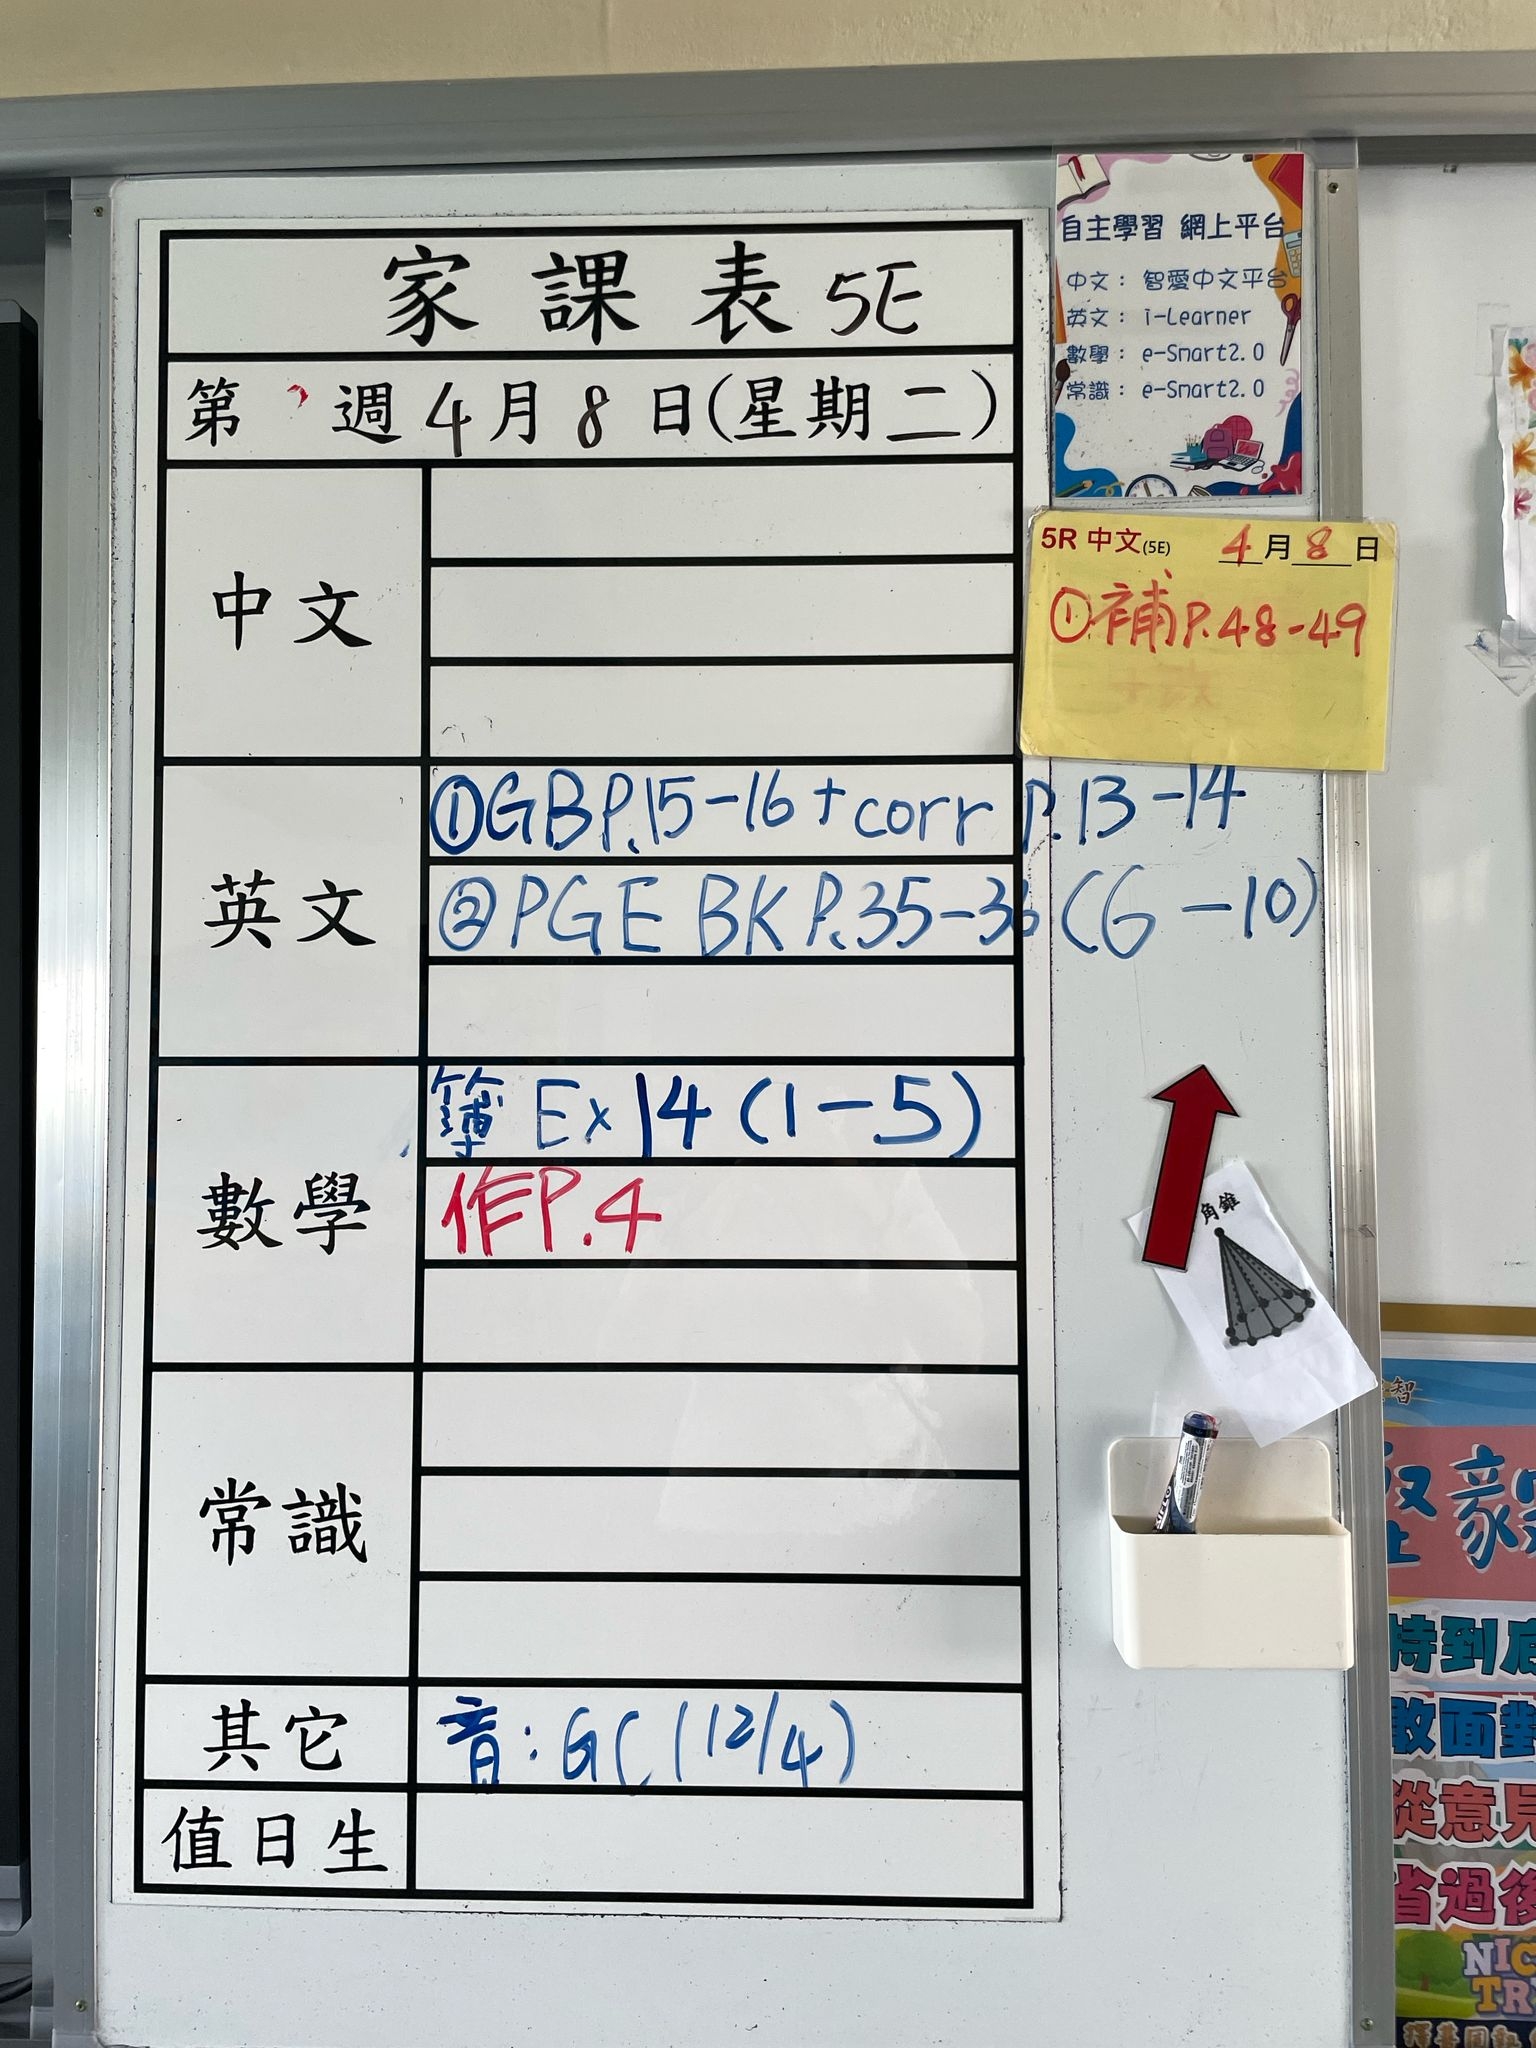 家課表 5E
第 週 4月 8日(星期二)
中文
英文
①GB P.15-16 + corr P.13-14
② PGE BK P.35-36 (6-10)
數學
簿 Ex 14 (1-5)
作P.4
常識
其它
音: GC (12/4)
值日生
自主學習 網上平台
中文: 智愛中文平台
英文: i-Learner
數學: e-Smart2.0
常識: e-Smart2.0
5R 中文(5E) 4月8日
①補P.48-49
角錐
智
家
持到底
敢面對
從意見
省過後
NIC
TR